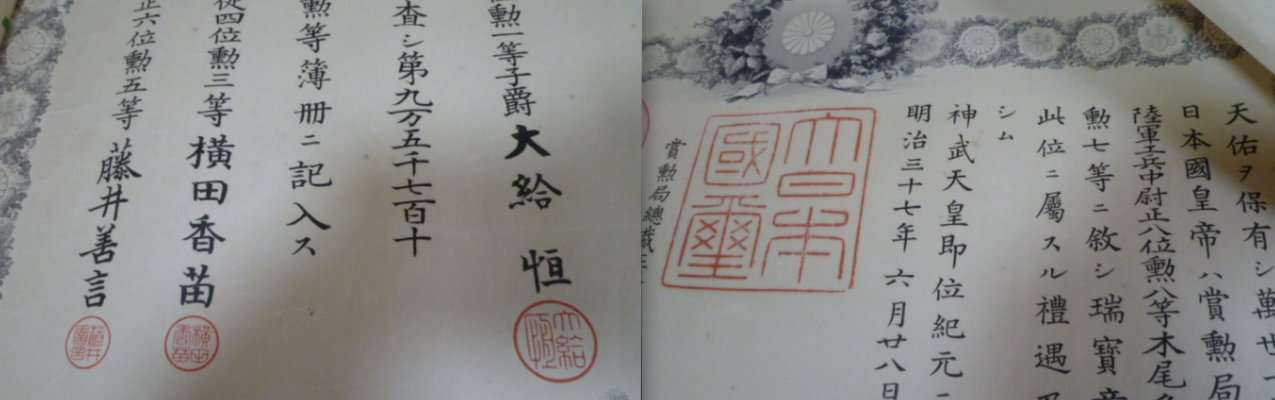 天佑ヲ保有シ萬世
日本國皇帝ハ賞勲局
陸軍工兵中尉正八位勲八等木尾
勲七等ニ敘シ瑞寶章
此位ニ屬スル禮遇
シム
神武天皇即位紀元
明治三十七年六月廿八日
大日本國璽
賞勲局總裁正
勲一等子爵大給恒
大給恒
査シ第九万五千七百十
勲等簿冊ニ記入ス
從四位勲三等横田香苗
横田香苗
正六位勲五等藤井善言
藤井善言